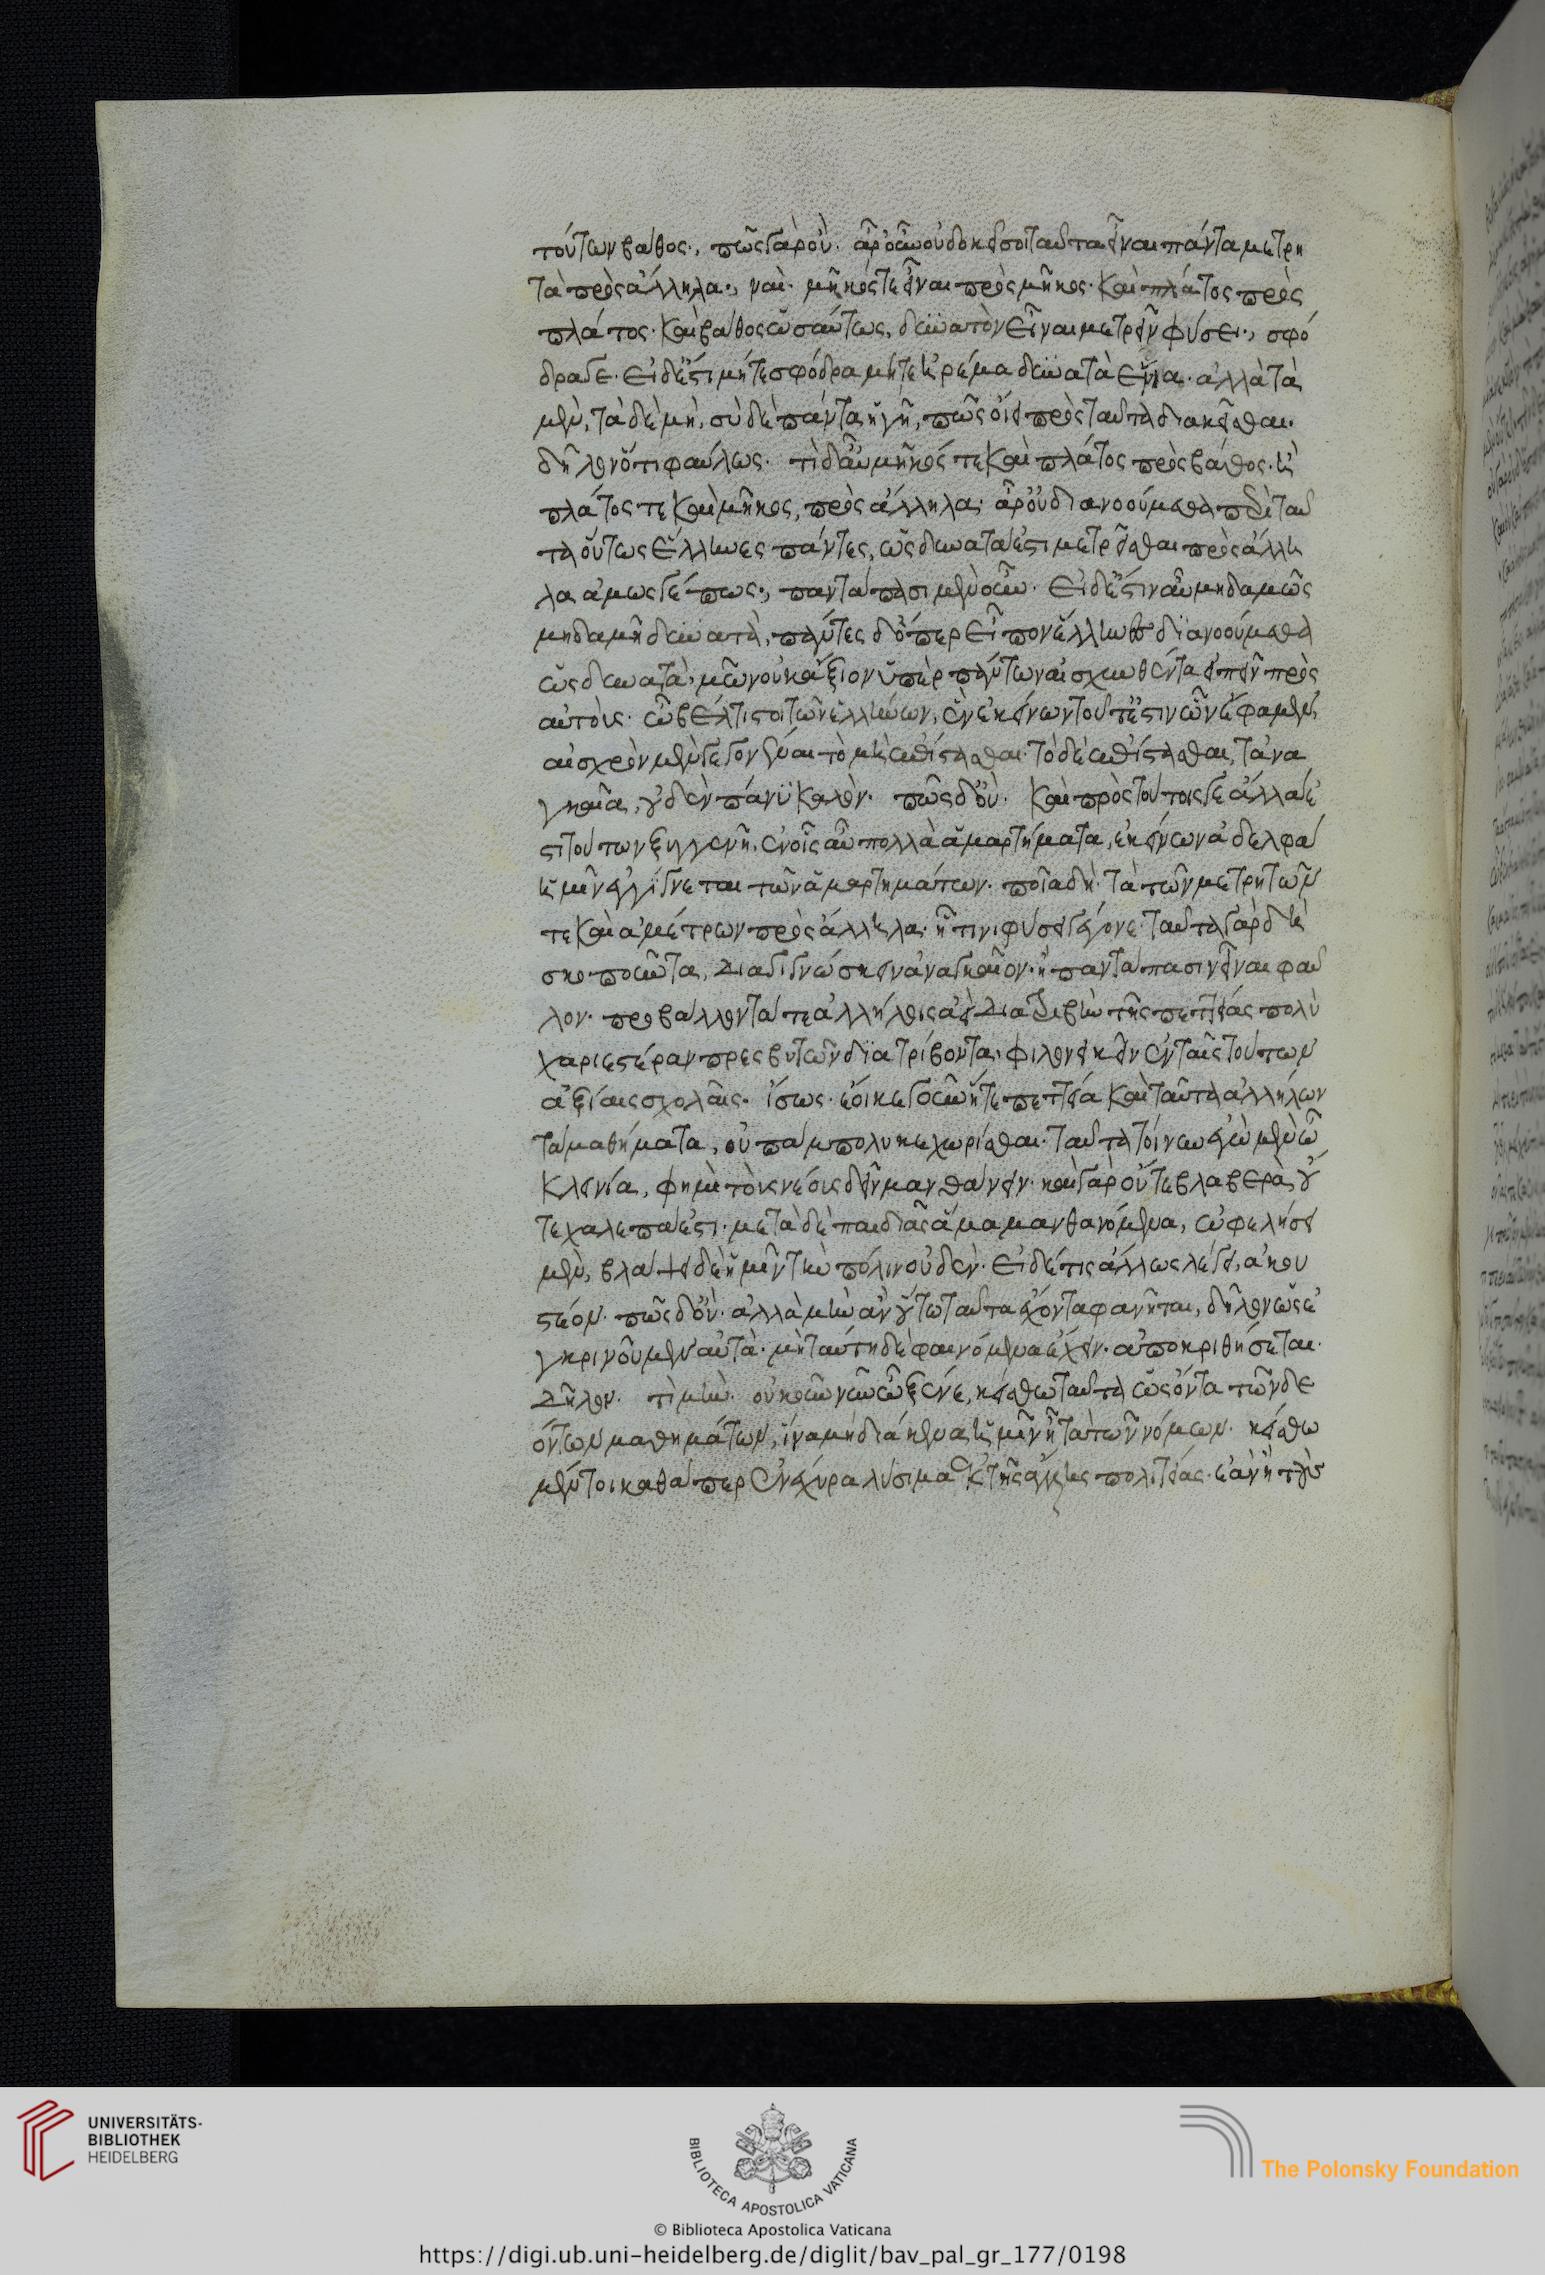 τούτων βάθος., πῶς γὰρ οὔ. ἆρ' οὖν οὐ δοκεῖ σοι ταῦτα εἶναι πάντα μετρη
τὰ πρὸς ἄλληλα., ναί. μῆκός τε εἶναι πρὸς μῆκος. καὶ πλάτος πρὸς
πλάτος. καὶ βάθος ὡσαύτως, δυνατὸν εἶναι μετρεῖν φύσει., σφό
δρα γε. εἰ δ' ἔστι μήτε σφόδρα μήτε ἠρέμα δυνατὰ ἔνια. ἀλλὰ τὰ
μὲν, τὰ δὲ μή, σὺ δὲ πάντα ἡγῇ, πῶς οἴει πρὸς ταῦτα διακεῖσθαι.
δῆλον ὅτι φαύλως. τί δ' αὖ μῆκός τε καὶ πλάτος πρὸς βάθος. ἢ
πλάτος τε καὶ μῆκος, πρὸς ἄλληλα. ἆρ' οὐ διανοούμεθα περὶ ταῦ
τα οὕτως ἕλληνες πάντες, ὡς δυνατά ἐστι μετρεῖσθαι πρὸς ἄλλη
λα ἁμῶς γέ πως., παντάπασι μὲν οὖν. εἰ δ' ἔστιν αὖ μηδαμῶς
μηδαμῇ δυνατὰ, πάντες δ' ὅπερ εἶπον ἕλληνες διανοούμεθα
ὡς δυνατὰ, μῶν οὐκ ἄξιον ὑπὲρ πάντων αἰσχυνθέντα εἰπεῖν πρὸς
αὐτούς. ὦ βέλτιστοι τῶν ἑλλήνων, ἓν ἐκείνων τοῦτ' ἔστιν ὧν ἔφαμεν,
αἰσχρὸν μὲν γεγονέναι τὸ μὴ ἐπίστασθαι. τὸ δ' ἐπίστασθαι, τἀνα
γκαῖα, οὐδὲν πάνυ καλόν. πῶς δ' οὔ. καὶ πρὸς τούτοις γε ἄλλα ἔ
στι τούτων ξυγγενῆ, ἐν οἷς αὖ πολλὰ ἁμαρτήματα, ἐκείνων ἀδελφὰ
ἡμῖν ἐγγίγνεται τῶν ἁμαρτημάτων. ποῖα δή. τὰ τῶν μετρητῶν
τε καὶ ἀμέτρων πρὸς ἄλληλα. ᾗτινι φύσει γέγονε. ταῦτα γὰρ δὴ
σκοποῦντα, διαγιγνώσκειν ἀναγκαῖον. ἢ παντάπασιν εἶναι φαῦ
λον. προβάλλοντά τε ἀλλήλοις ἀεὶ διατριβὴν τῆς πεττείας πολὺ
χαριεστέραν πρεσβυτῶν διατρίβοντα, φιλονεικεῖν ἐν ταῖς τούτων
ἀξίαις σχολαῖς. ἴσως. ἔοικε γοῦν ἥ τε πεττεία καὶ ταῦτα ἀλλήλων
τὰ μαθήματα, οὐ πάμπολυ κεχωρίσθαι. ταῦτα τοίνυν ἐγὼ μὲν ὦ
κλεινία, φημὶ τοὺς νέους δεῖν μανθάνειν. καὶ γὰρ οὔτε βλαβερὰ, οὔ
τε χαλεπά ἐστι. μετὰ δὲ παιδιᾶς ἅμα μανθανόμενα, ὠφελήσει
μὲν, βλάψει δὲ ἡμῖν τὴν πόλιν οὐδέν. εἰ δέ τις ἄλλως λέγει, ἀκου
στέον. πῶς δ' οὔ. ἀλλὰ μὴν ἂν οὕτω ταῦτα ἔχοντα φανῆται, δῆλον ὡς ἐ
γκρινοῦμεν αὐτά. μὴ ταύτῃ δὲ φαινόμενα ἔχειν. ἀποκριθήσεται.
δῆλον. τί μήν. οὐκοῦν νῦν ὦ ξένε, κείσθω ταῦτα ὡς ὄντα τῶν δε
όντων μαθημάτων, ἵνα μὴ διάκενα ἡμῖν ᾖ τὰ τῶν νόμων. κείσθω
μέντοι καθάπερ ἐνέχυρα λύσιμα ἐκ τῆς ἄλλης πολιτείας. ἐὰν ἢ τοὺς
UNIVERSITÄTS-
BIBLIOTHEK
HEIDELBERG
BIBLIOTECA APOSTOLICA VATICANA
The Polonsky Foundation
© Biblioteca Apostolica Vaticana
https://digi.ub.uni-heidelberg.de/diglit/bav_pal_gr_177/0198